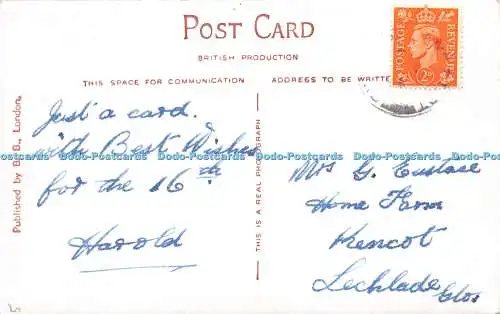 POST CARD
BRITISH PRODUCTION
THIS SPACE FOR COMMUNICATION
ADDRESS TO BE WRITTE
POSTAGE
REVENUE
2D
Published by B. B., London.
THIS IS A REAL PHOTOGRAPH
Just a card.
with Best Wishes
for the 16th
Harold
Mrs G. Eustace
Home Farm
Kencot
Lechlade
Glos
Dodo-Postcards Dodo-Postcards Dodo-Postcards Dodo-Postcards Dodo-Postcards Dodo-Postcards